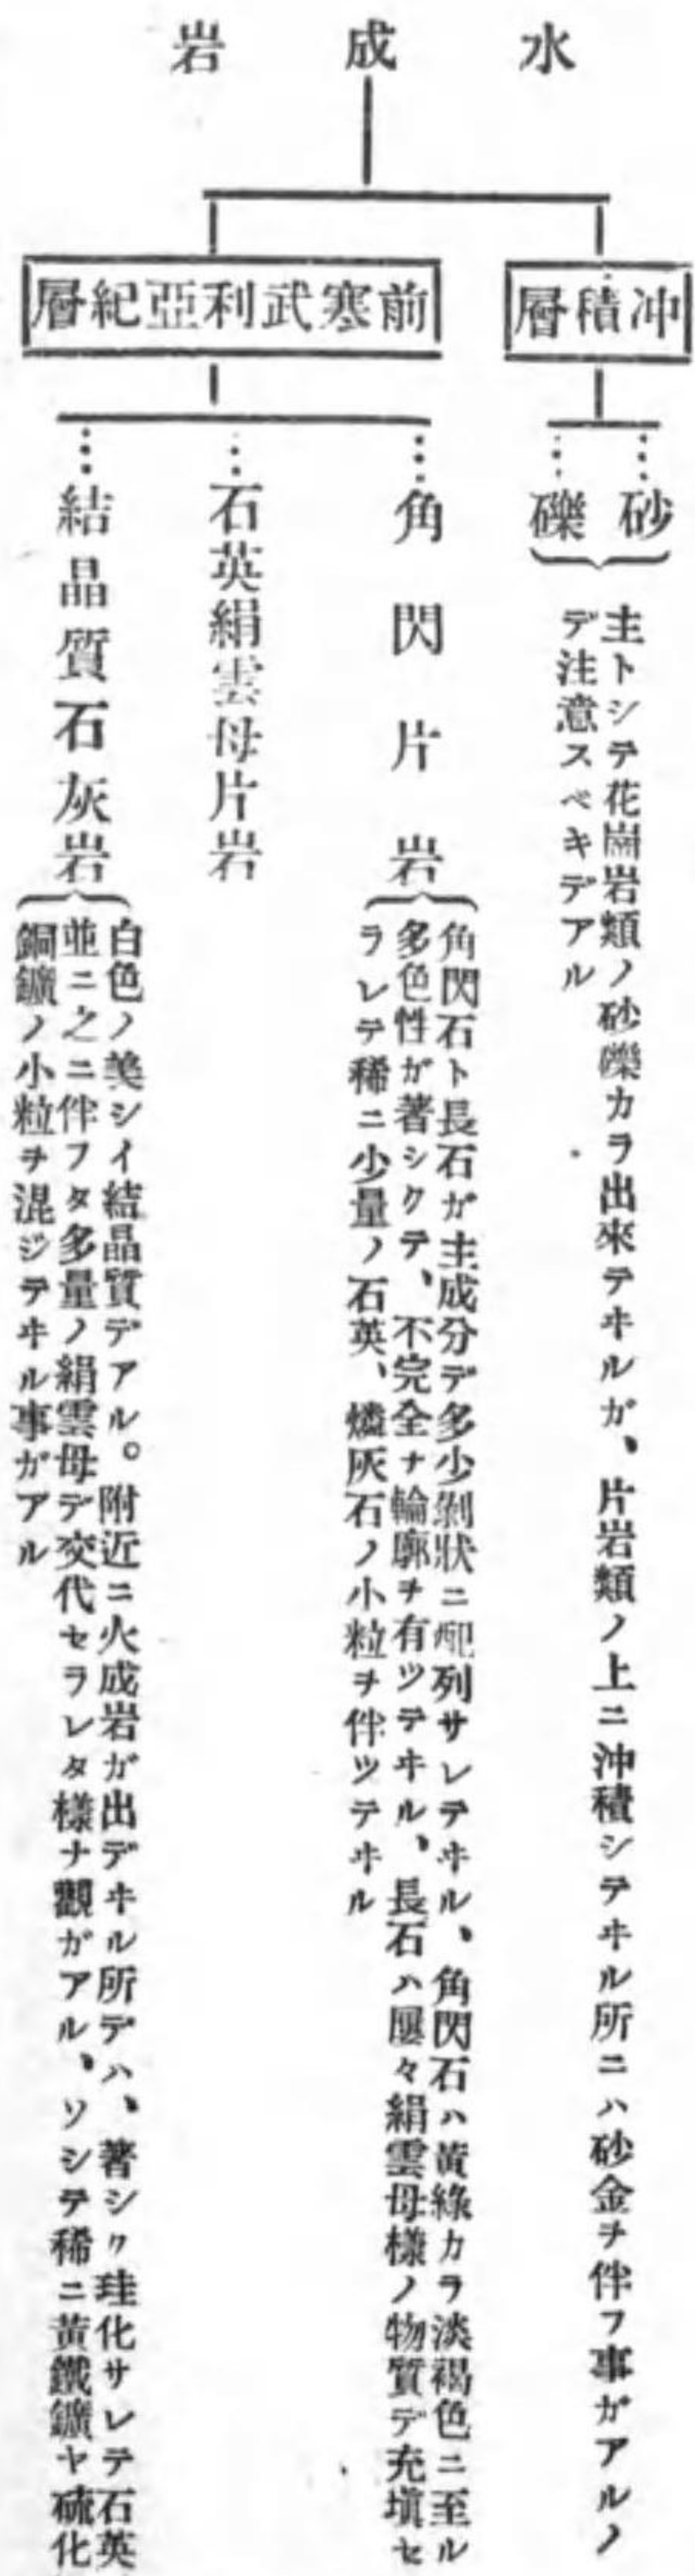 水成岩
冲積層
砂
礫
主トシテ花崗岩類ノ砂礫カラ出來テヰルガ、片岩類ノ上ニ沖積シテヰル所ニハ砂金ヲ伴フ事ガアルノ
デ注意スベキデアル
前寒武利亞紀層
角閃片岩
角閃石ト長石ガ主成分デ多少剝狀ニ配列サレテヰル、角閃石ハ黃綠カラ淡褐色ニ至ル
多色性ガ著シクテ、不完全ナ輪廓ヲ有ツテヰル、長石ハ屢々絹雲母樣ノ物質デ充塡セ
ラレテ稀ニ少量ノ石英、燐灰石ノ小粒ヲ伴ツテヰル
石英絹雲母片岩
結晶質石灰岩
白色ノ美シイ結晶質デアル。附近ニ火成岩ガ出デヰル所デハ、著シク珪化サレテ石英
並ニ之ニ伴フタ多量ノ絹雲母デ交代セラレタ樣ナ觀ガアル、ソシテ稀ニ黃鐵鑛ヤ硫化
銅鑛ノ小粒ヲ混ジテヰル事ガアル